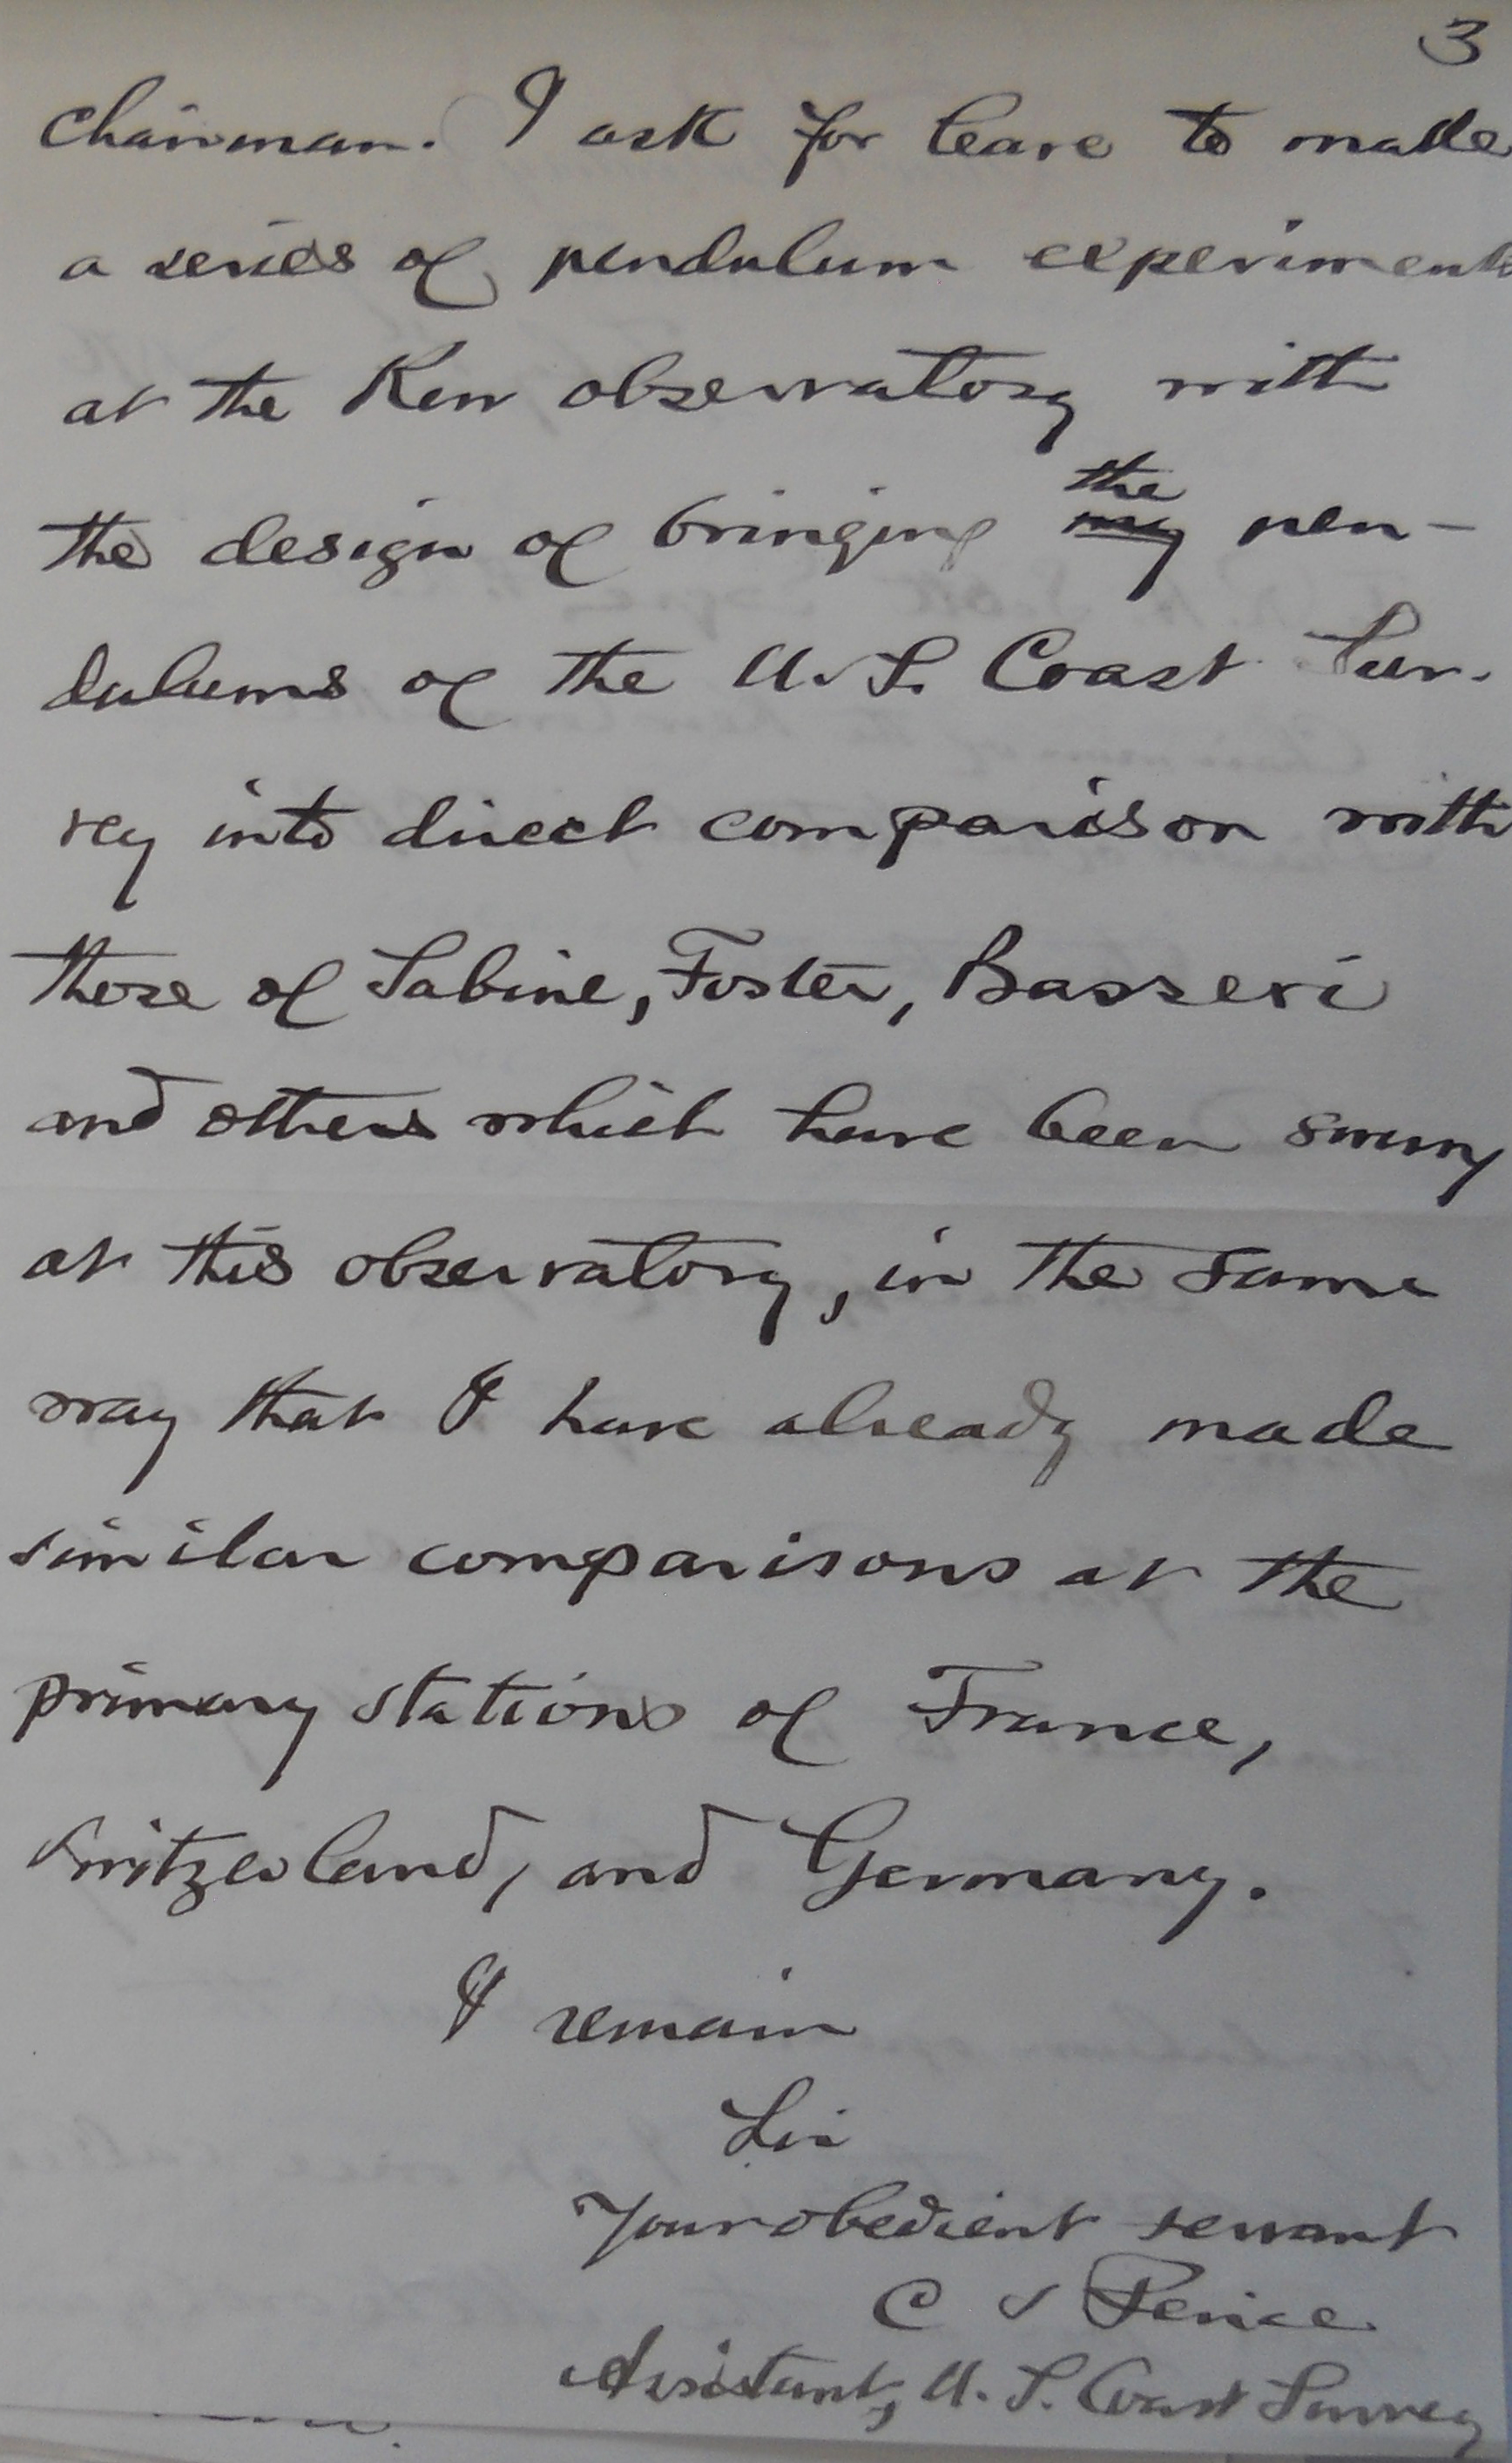 3
Chairman. I ask for leave to make
a series of pendulum experiments
at the Kew observatory with
the
the design of bringing my pen-
dulums of the U.S. Coast Sur-
vey into direct comparison with
those of Sabine, Foster, Bassevi
and others which have been swung
at this observatory, in the same
way that I have already made
similar comparisons at the
primary stations of France,
Switzerland, and Germany.
I remain
Sir
Your obedient servant
C S Peirce
Assistant, U.S. Coast Survey